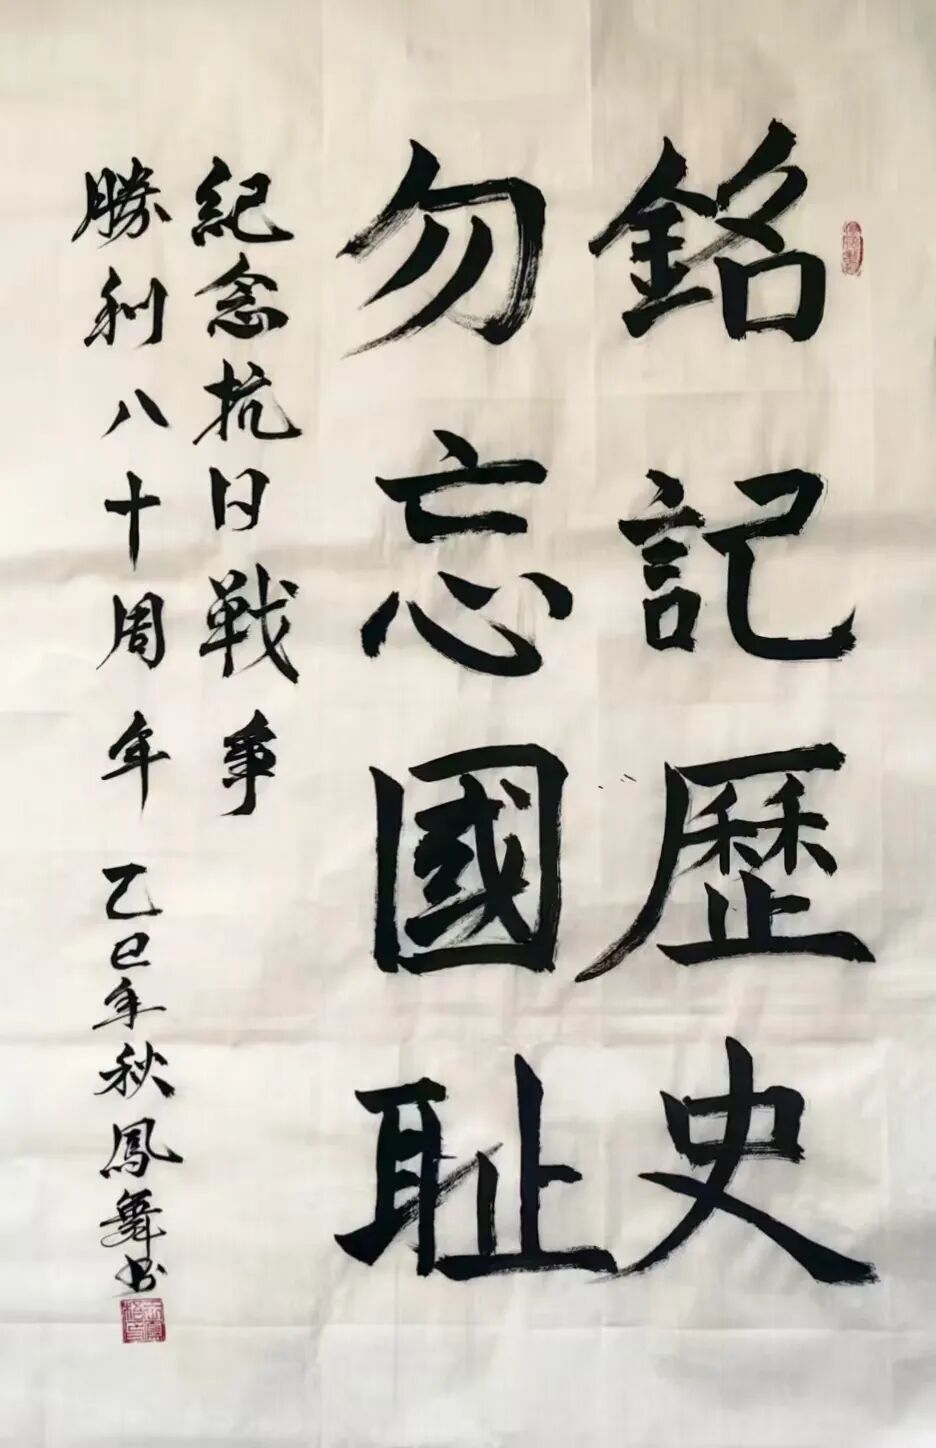 銘記歷史
勿忘國耻
紀念抗日戰爭
勝利八十周年 乙巳年秋鳳舞书